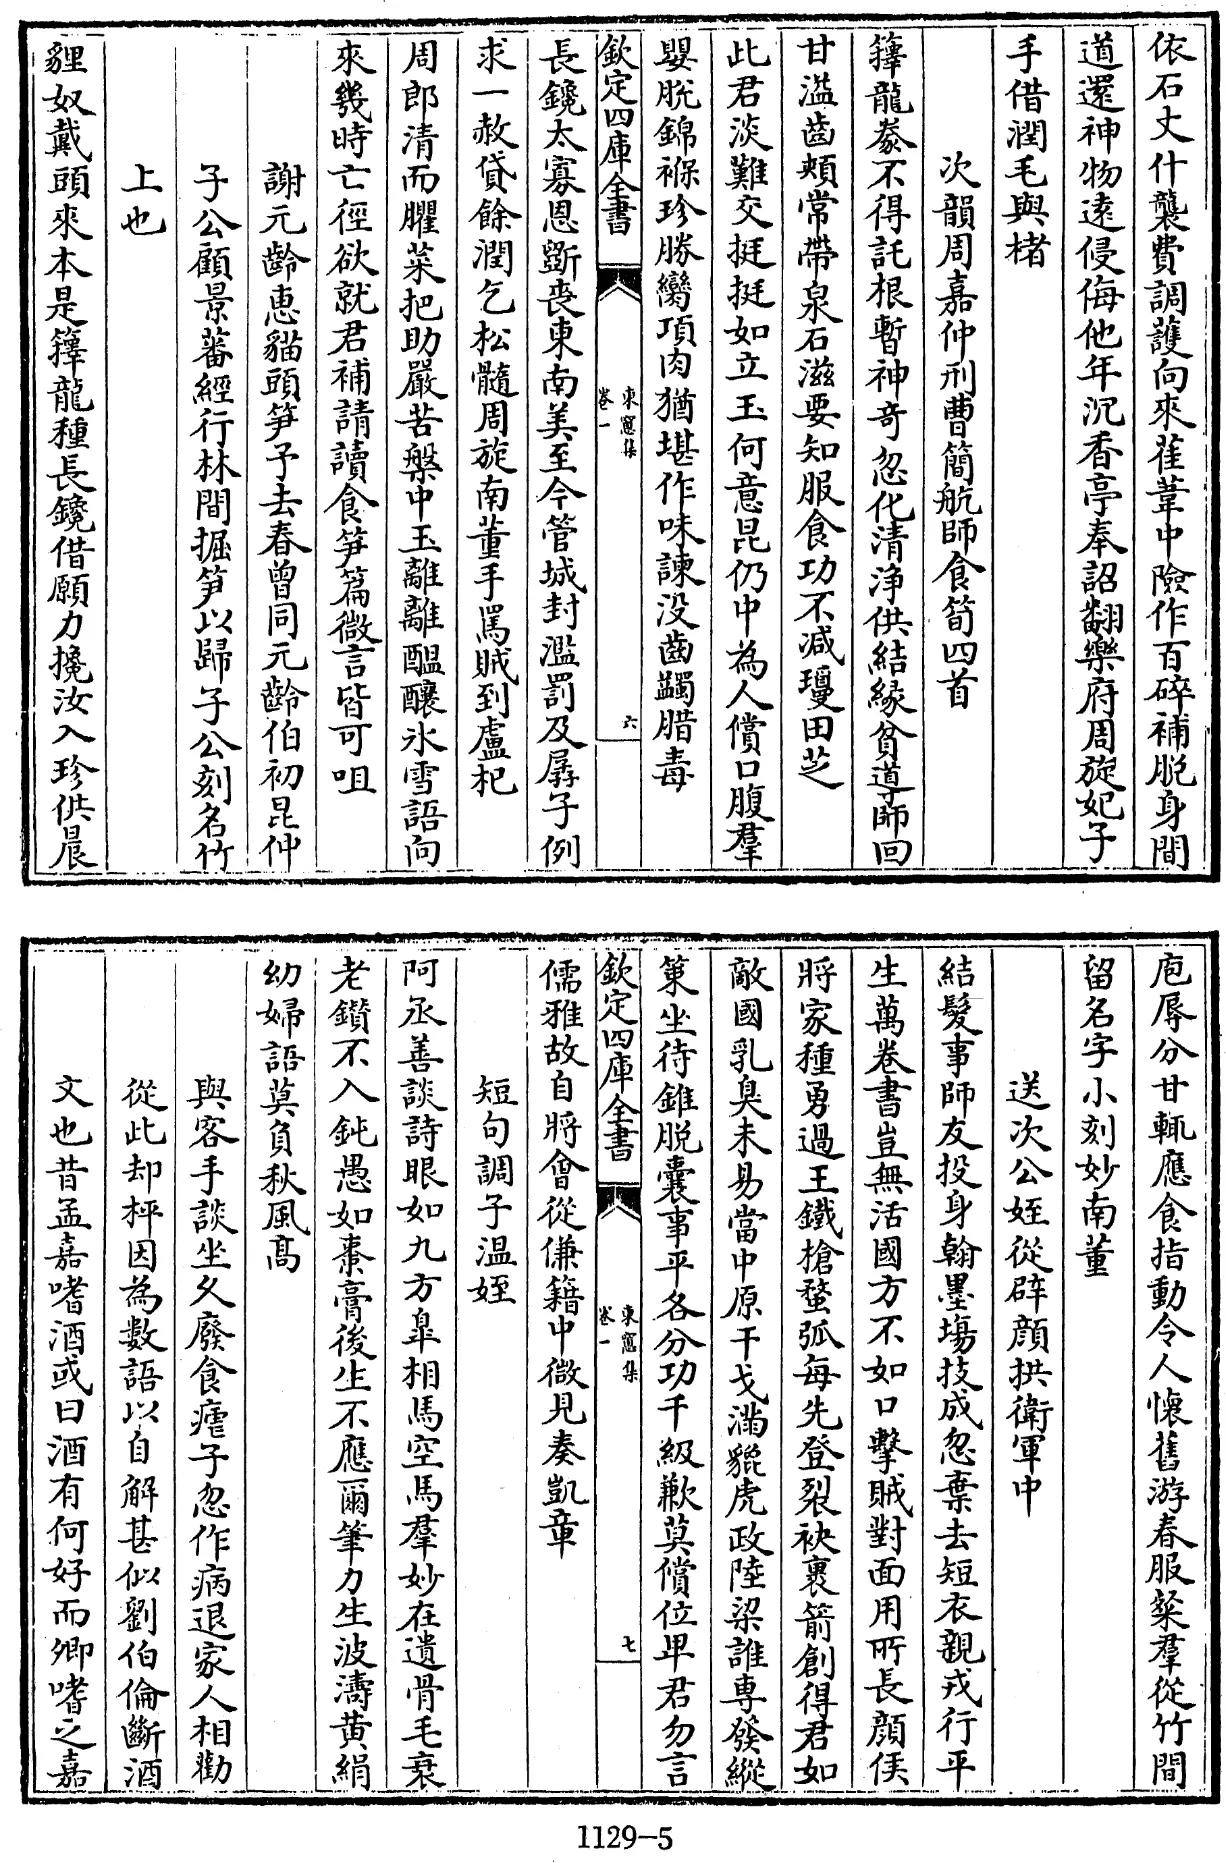 依石丈什襲費調護向來萑葦中險作百碎補脱身間
道還神物遠侵侮他年沉香亭奉詔翻樂府周旋妃子
手借潤毛與楮
次韻周嘉仲刑曹簡航師食筍四首
籜龍豢不得託根暫神奇忽化清浄供結縁貧導師回
甘溢齒頰常帶泉石滋要知服食功不减瓊田芝
此君淡難交挺挺如立玉何意昆仍中為人償口腹羣
嬰脱錦褓珍勝鸞項肉猶堪作味諫没齒蠲腊毒
欽定四庫全書
東窻集
卷一
六
長鑱太寡恩斵喪東南美至今管城封濫罰及孱子例
求一赦貸餘潤乞松髓周旋南董手罵賊到盧𣏌
周郎清而臞菜把助嚴苦槃中玉離離醖釀氷雪語向
來幾時亡徑欲就君補請讀食笋篇微言皆可咀
謝元齡惠貓頭笋予去春曾同元齡伯初昆仲
子公顧景蕃經行林間掘笋以歸子公刻名竹
上也
貍奴戴頭來本是籜龍種長鑱借願力攙汝入珍供晨
庖辱分甘輒應食指動令人懷舊游春服粲羣從竹間
留名字小刻妙南董
送次公姪從辟顔拱衛軍中
結髮事師友投身翰墨塲技成忽棄去短衣親戎行平
生萬卷書豈無活國方不如口擊賊對面用所長顔侯
將家種勇過王鐵槍蝥弧每先登裂袂裹箭創得君如
敵國乳臭未易當中原干戈滿貔虎政陸梁誰專發縱
䇿坐待錐脱囊事平各分功千級歉莫償位卑君勿言
欽定四庫全書
東窻集
卷一
七
儒雅故自將會從傔籍中微見奏凱章
短句調子温姪
阿丞善談詩眼如九方臯相馬空馬羣妙在遺骨毛衰
老鑽不入鈍愚如棗膏後生不應爾筆力生波濤黄絹
幼婦語莫負秋風髙
與客手談坐久廢食瘧子忽作病退家人相勸
從此却枰因為數語以自解甚似劉伯倫斷酒
文也昔孟嘉嗜酒或曰酒有何好而卿嗜之嘉
1129-5